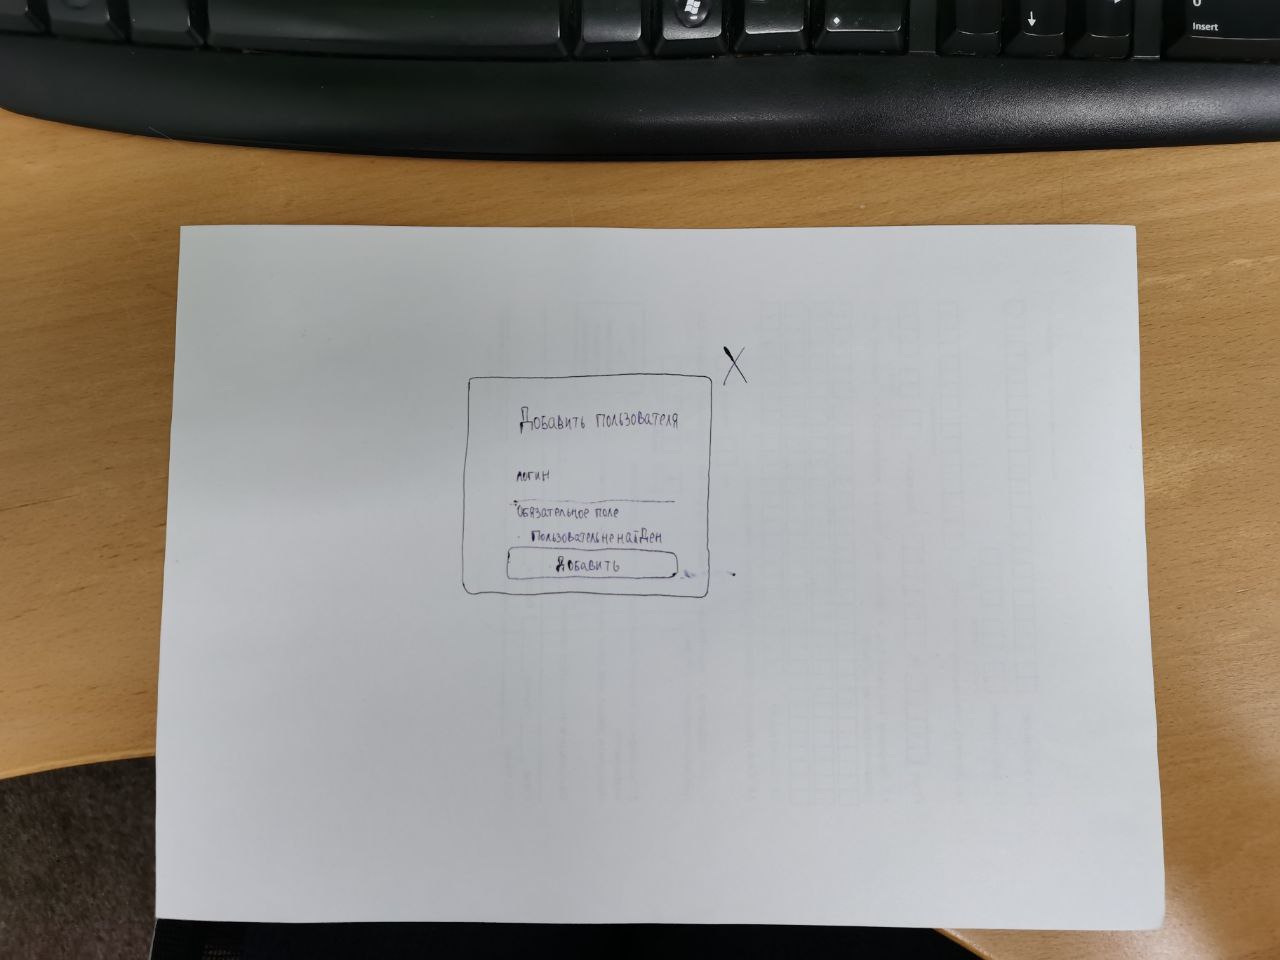 Insert
X
Добавить пользователя
логин
Обязательное поле
Пользователь не найден
Добавить